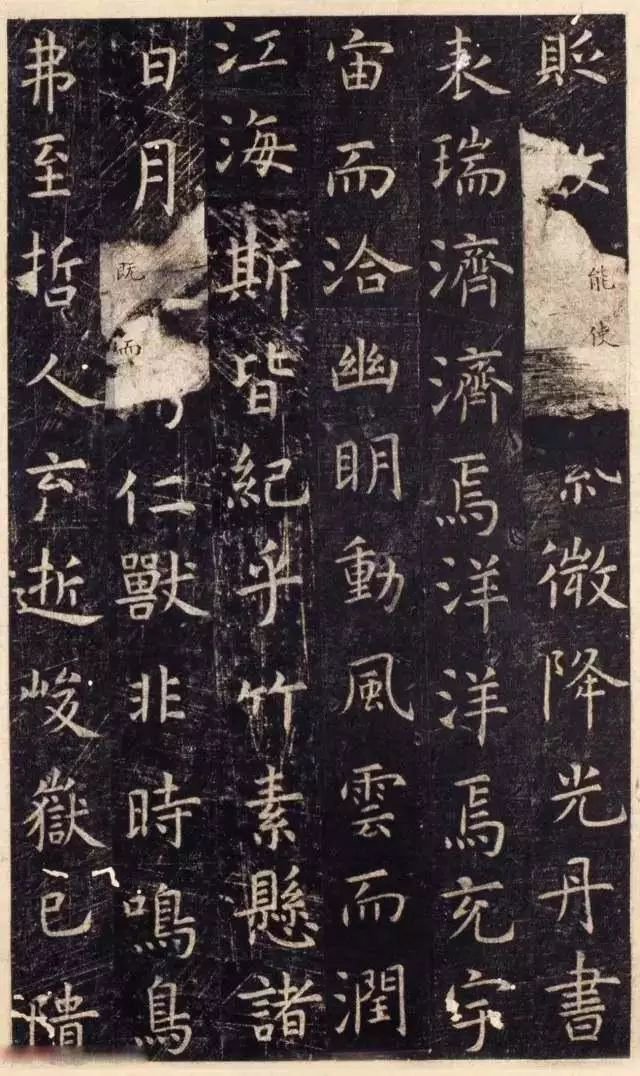 貶故能使紫微降光丹書
表瑞濟濟焉洋洋焉充宇
宙而洽幽明動風雲而潤
江海斯皆紀乎竹素懸諸
日月既而仁獸非時鳴鳥
弗至哲人云逝峻嶽已隤